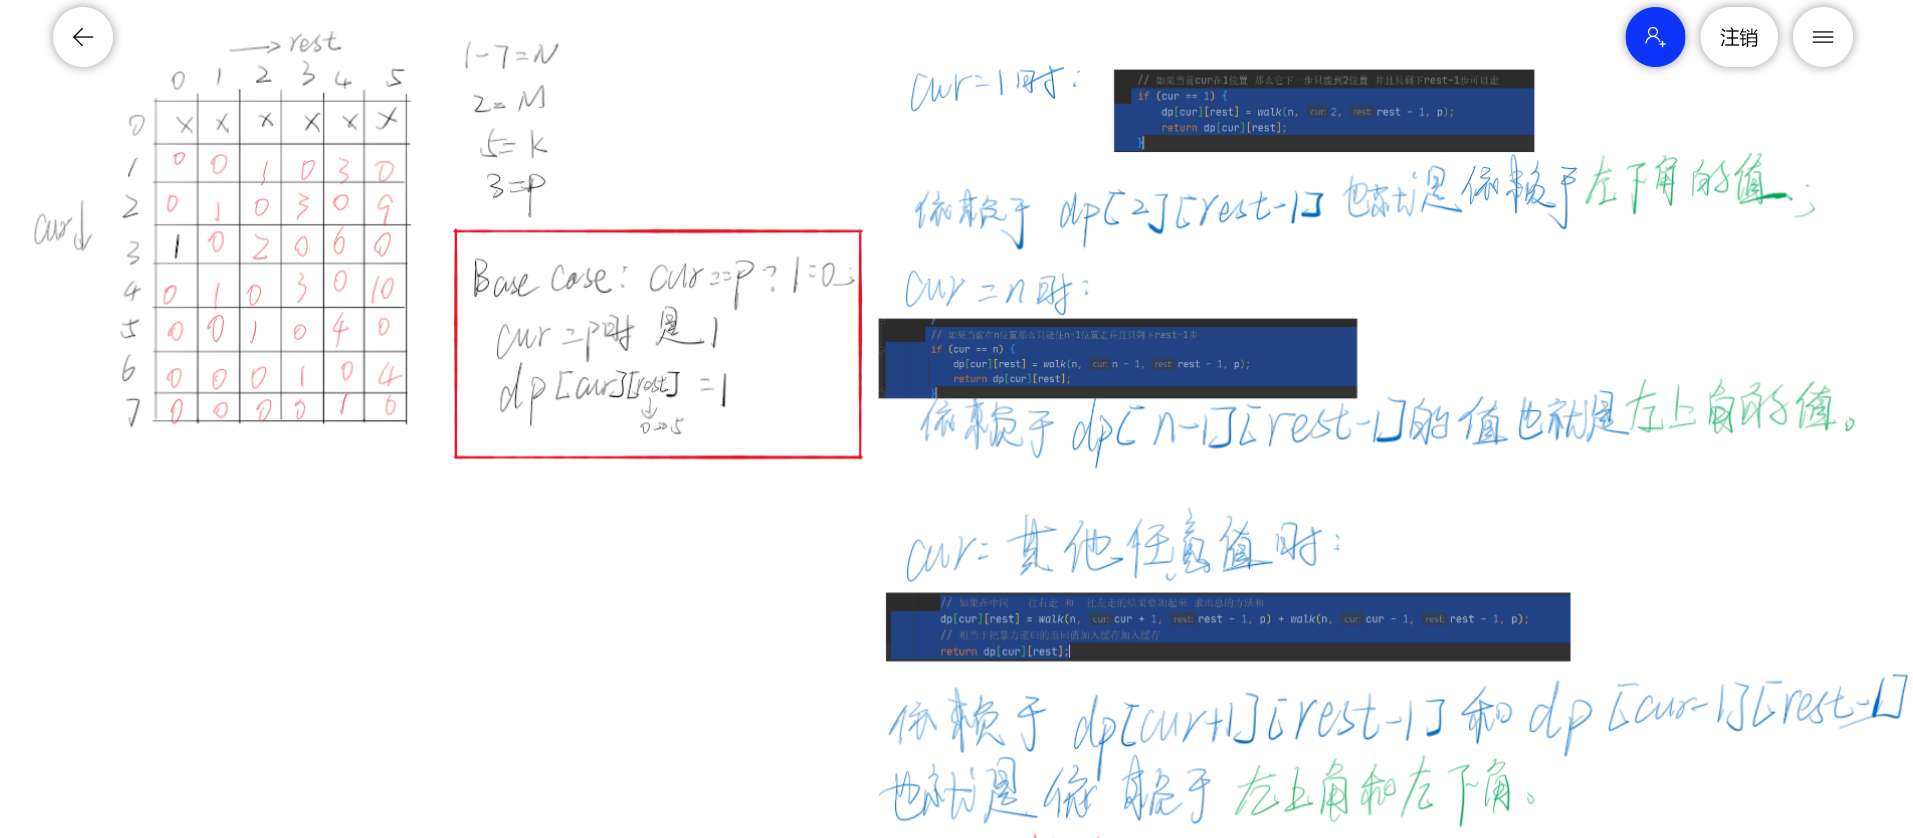 注销
→ rest
0 1 2 3 4 5
0 x x x x x x
1 0 0 1 0 3 0
2 0 1 0 3 0 9
cur↓
3 1 0 2 0 6 0
4 0 1 0 3 0 10
5 0 0 1 0 4 0
6 0 0 0 1 0 4
7 0 0 0 0 1 0
1-7=N
2=M
5=K
3=P
Base Case: cur==P?1:0;
cur=P时是1
dp[cur][rest]=1
↓
0→5
cur=1时:
// 如果当前cur在1位置 那么它下一步只能到2位置 并且只剩下rest-1步可以走
if (cur == 1) {
dp[cur][rest] = walk(n, cur: 2, rest: rest - 1, p);
return dp[cur][rest];
}
依赖于 dp[2][rest-1] 也就是依赖于左下角的值;
cur=n时:
// 如果当前在n位置那么只能往n-1位置走并且只剩下rest-1步
if (cur == n) {
dp[cur][rest] = walk(n, cur: n - 1, rest: rest - 1, p);
return dp[cur][rest];
}
依赖于 dp[n-1][rest-1]的值也就是左上角的值。
cur=其他任意值时:
// 如果在中间 往右走 和 往左走的结果要加起来 求出总的方法和
dp[cur][rest] = walk(n, cur: cur + 1, rest: rest - 1, p) + walk(n, cur: cur - 1, rest: rest - 1, p);
// 相当于把暴力递归的返回值加入缓存加入缓存
return dp[cur][rest];
依赖于 dp[cur+1][rest-1] 和 dp[cur-1][rest-1]
也就是依赖于左上角和左下角。